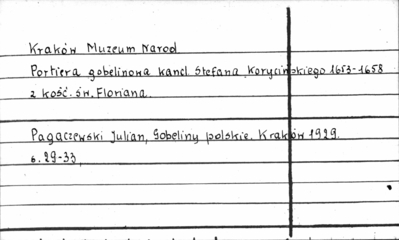 Kraków Muzeum Narod
Portiera gobelinowa kancl. Stefana Korycińskiego 1653-1658
z kość. św. Floriana.
Pagaczewski Julian, Gobeliny polskie. Kraków 1929.
s. 29-33